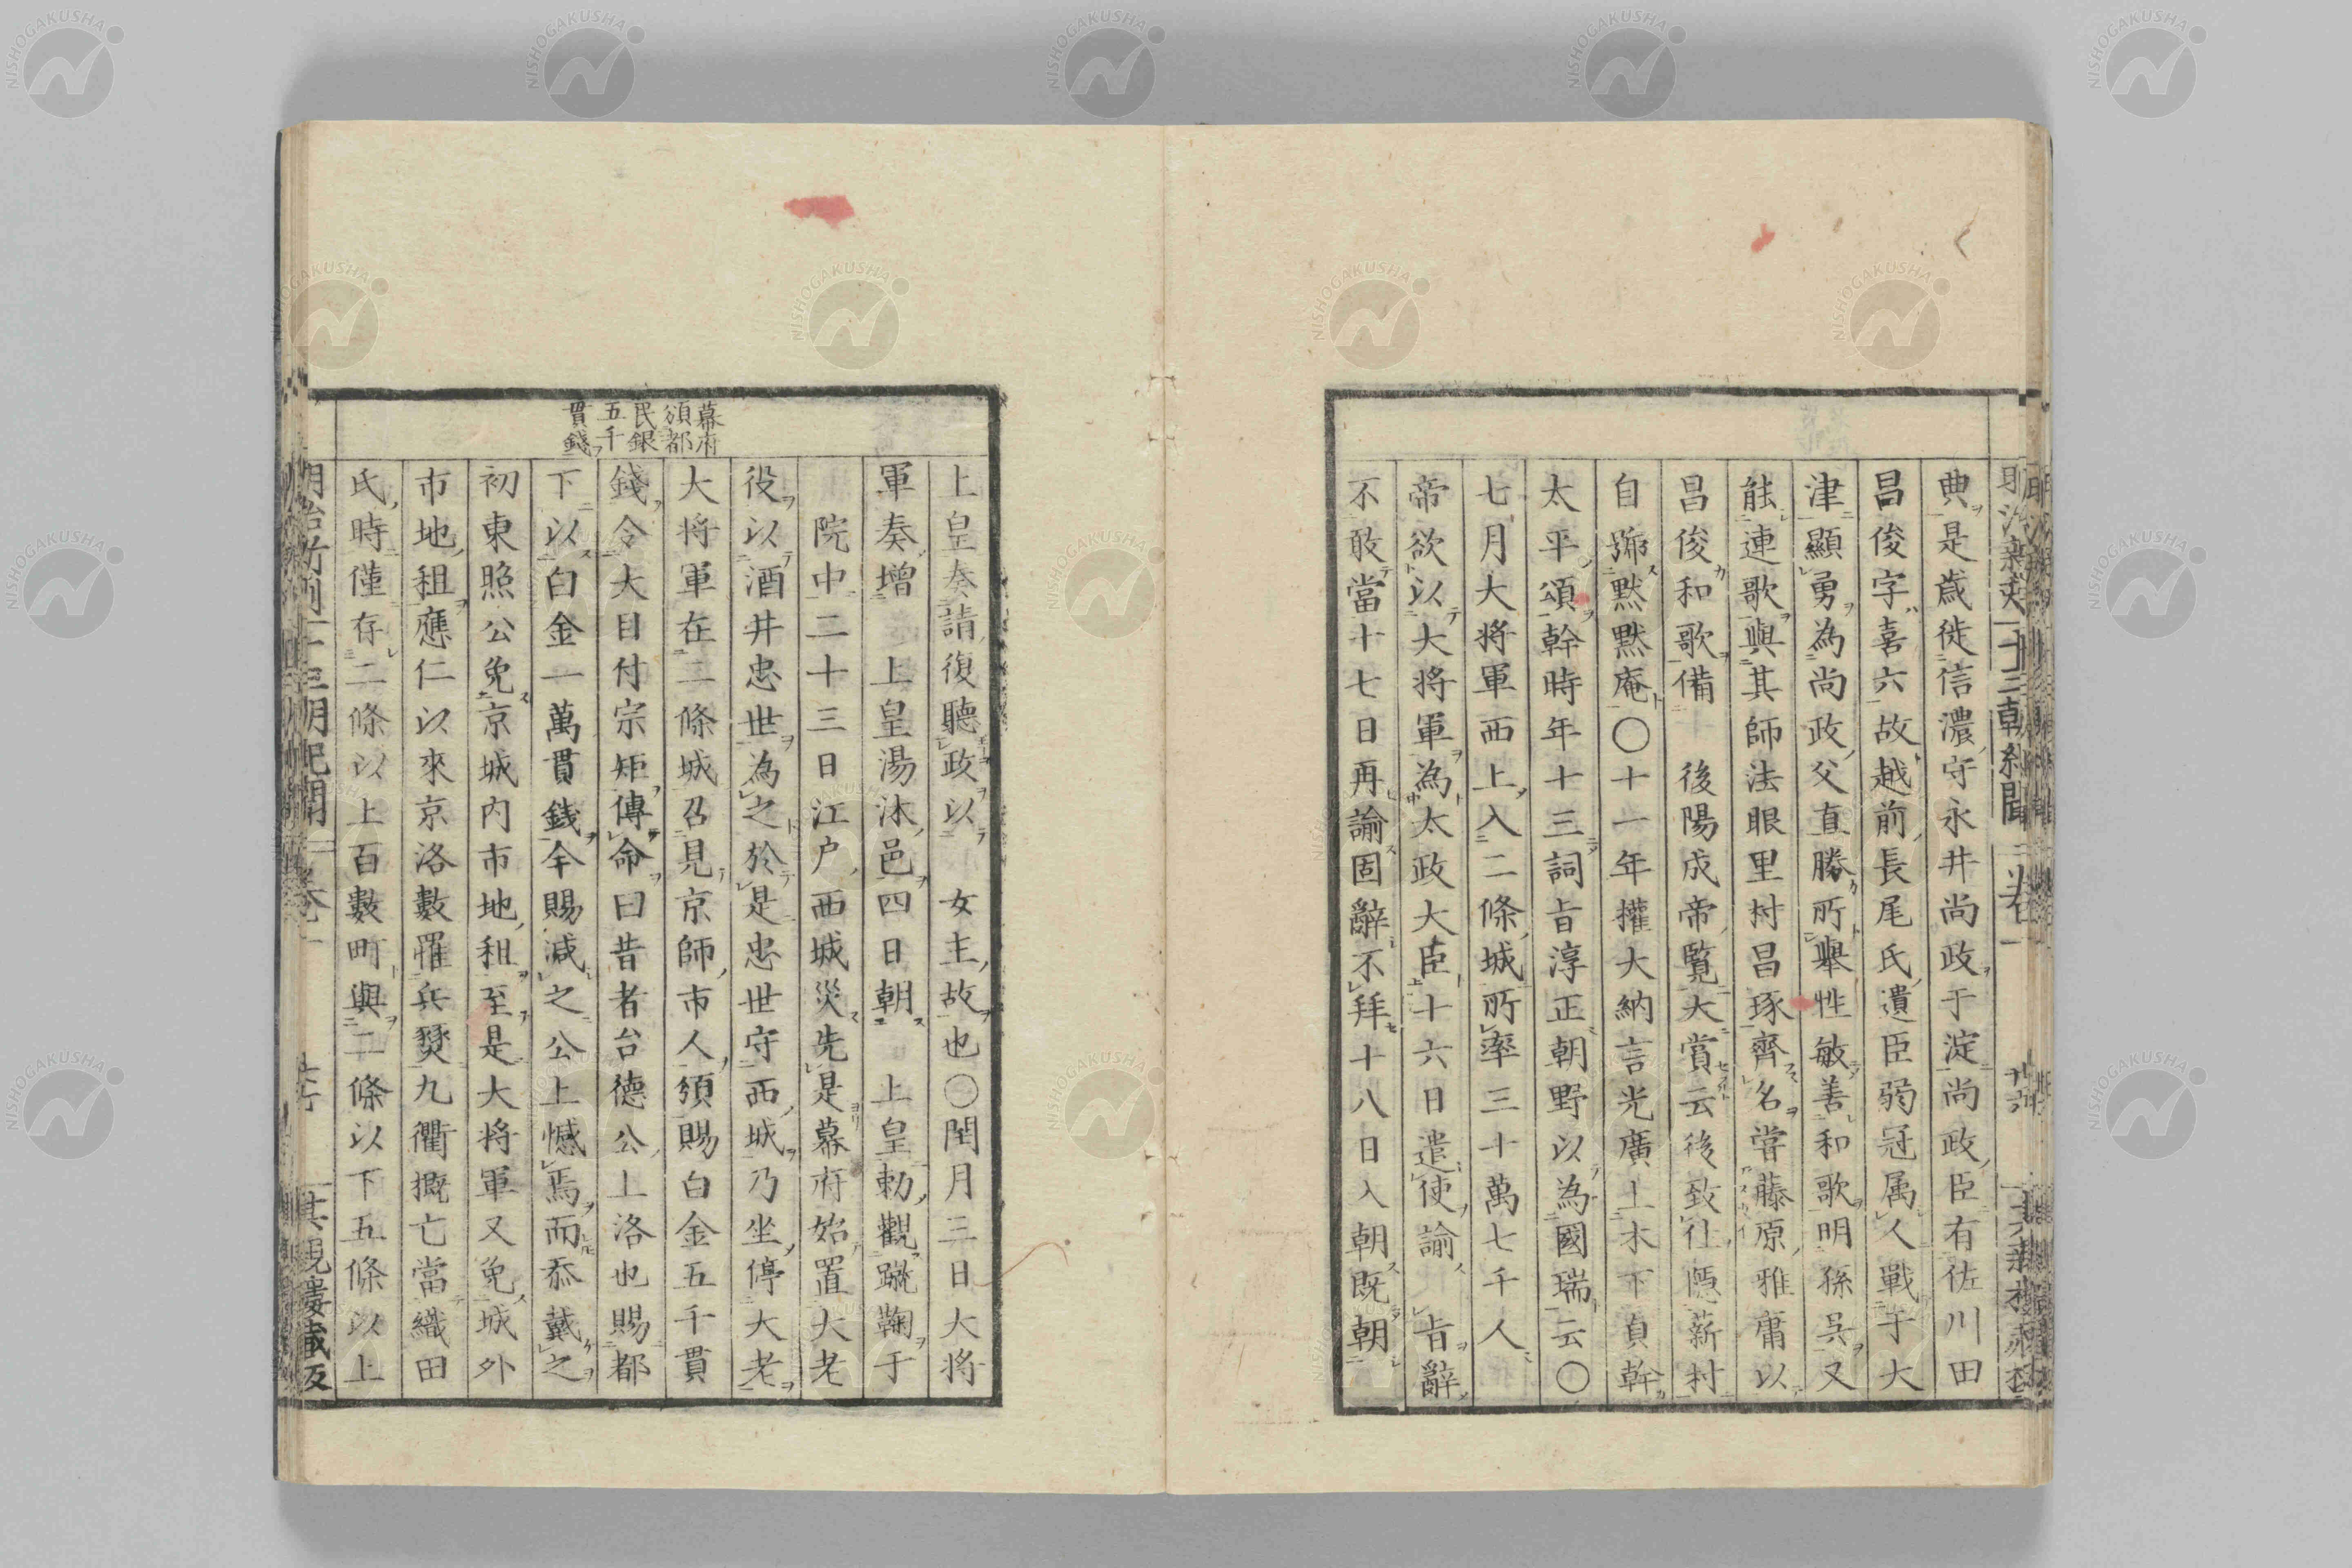 典是歳徙信濃守永井尚政于淀尚政臣有佐川田
昌俊字喜六故越前長尾氏遺臣弱冠属人戰于大
津顯勇為尚政父直勝所擧性敏善和歌明孫呉又
能連歌與其師法眼里村昌琢齊名嘗藤原雅庸以
昌俊和歌備　後陽成帝覧大賞云後致仕隱薪村
自號黙黙庵〇十一年權大納言光廣上木下貞幹
太平頌幹時年十三詞旨淳正朝野以為國瑞云〇
七月大将軍西上入二條城所率三十萬七千人
帝欲以大将軍為太政大臣十六日遣使諭　旨辭
不敢當十七日再諭固辭不拜十八日入朝既朝
幕府
頒都
民銀
五千
貫錢
上皇奏請復聽政以　女主故也〇閏月三日大将
軍奏増　上皇湯沐邑四日朝　上皇勅觀蹴鞠于
院中二十三日江户西城災先是幕府始置大老
役以酒井忠世為之於是忠世守西城乃坐停大老
大将軍在二條城召見京師市人頒賜白金五千貫
錢令大目付宗矩傳命曰昔者台德公上洛也賜都
下以白金一萬貫錢今賜減之公上憾焉而忝戴之
初東照公免京城内市地租至是大将軍又免城外
市地租應仁以來京洛數罹兵燹九衢概亡當織田
氏時僅存二條以上百數町與二條以下五條以上